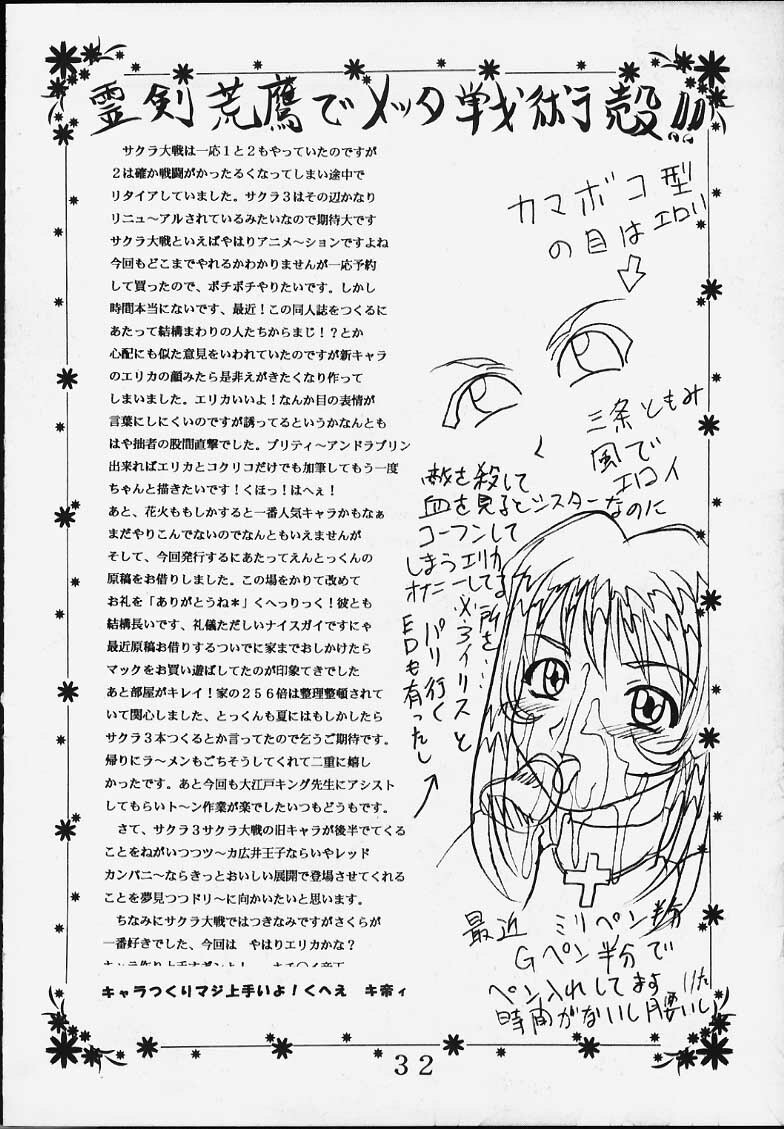 霊剣荒鷹でメッタ戦術殻!!
サクラ大戦は一応１と２もやっていたのですが
２は確か戦闘がかったるくなってしまい途中で
リタイアしていました。サクラ３はその辺かなり
リニュ～アルされているみたいなので期待大です
サクラ大戦といえばやはりアニメ～ションですよね
今回もどこまでやれるかわかりませんが一応予約
して買ったので、ボチボチやりたいです。しかし
時間本当にないです、最近！この同人誌をつくるに
あたって結構まわりの人たちからまじ！？とか
心配にも似た意見をいわれていたのですが新キャラ
のエリカの顔みたら是非えがきたくなり作って
しまいました。エリカいいよ！なんか目の表情が
言葉にしにくいのですが誘ってるというかなんとも
はや拙者の股間直撃でした。プリティ～アンドラブリン
出来ればエリカとコクリコだけでも加筆してもう一度
ちゃんと描きたいです！くほっ！はへぇ！
あと、花火ももしかすると一番人気キャラかもなぁ
まだやりこんでないのでなんともいえませんが
そして、今回発行するにあたってえんとっくんの
原稿をお借りしました。この場をかりて改めて
お礼を「ありがとうね＊」くへっりっく！彼とも
結構長いです、礼儀ただしいナイスガイですにゃ
最近原稿お借りするついでに家までおしかけたら
マックをお買い遊ばしてたのが印象てきでした
あと部屋がキレイ！家の２５６倍は整理整頓されて
いて関心しました、とっくんも夏にはもしかしたら
サクラ３本つくるとか言ってたので乞うご期待です。
帰りにラ～メンもごちそうしてくれて二重に嬉し
かったです。あと今回も大江戸キング先生にアシスト
してもらいト～ン作業が楽でしたいつもどうもです。
さて、サクラ３サクラ大戦の旧キャラが後半でてくる
ことをねがいつつツ～カ広井王子ならいやレッド
カンパニ～ならきっとおいしい展開で登場させてくれる
ことを夢見つつドリ～に向かいたいと思います。
ちなみにサクラ大戦ではつきなみですがさくらが
一番好きでした、今回は　やはりエリカかな？
キャラつくりマジ上手いよ！くへえ　キ帝ィ
カマボコ型
の目はエロい
三条ともみ
風で
エロイ
敵を殺して
血を見るとシスターなのに
コーフンして
しまうエリカ
オナニーしてる所を…
アイリスと
パリ行く
EDも有ったし
最近　ミリペン半分
Gペン半分で
ペン入れしてます
時間がないし腰痛いし
32